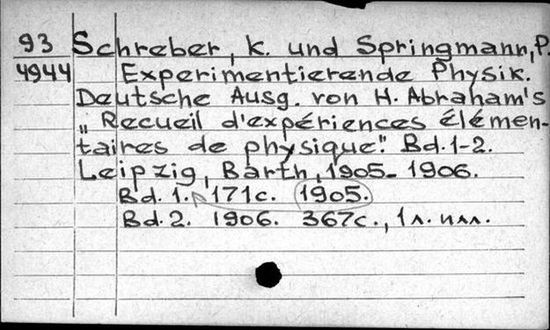 93 Schreber, K. und Springmann, P.
4944 Experimentierende Physik.
Deutsche Ausg. von H. Abraham's
„Recueil d'expériences élémen-
taires de physique". Bd. 1-2.
Leipzig, Barth, 1905-1906.
Bd. 1. 171с. 1905.
Bd. 2. 1906. 367с., 1 л. илл.